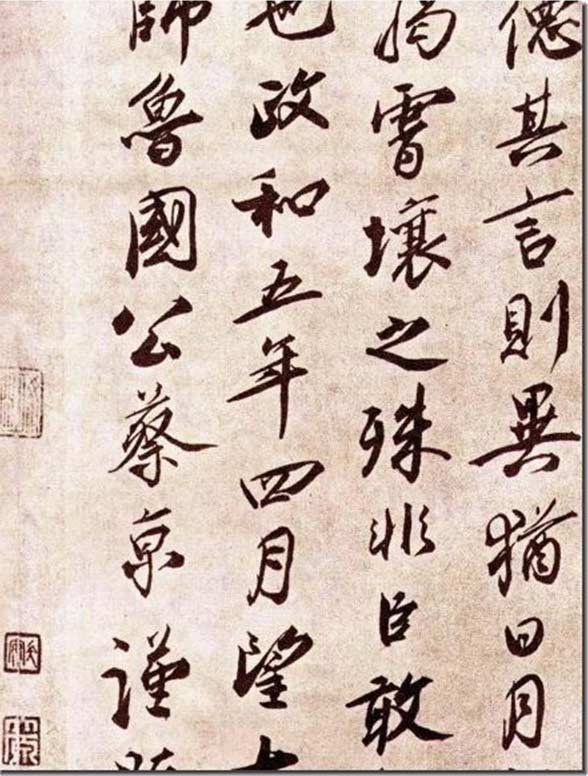 其言則異猶日月
霄壤之殊非臣敢
也政和五年四月望
師魯國公蔡京謹